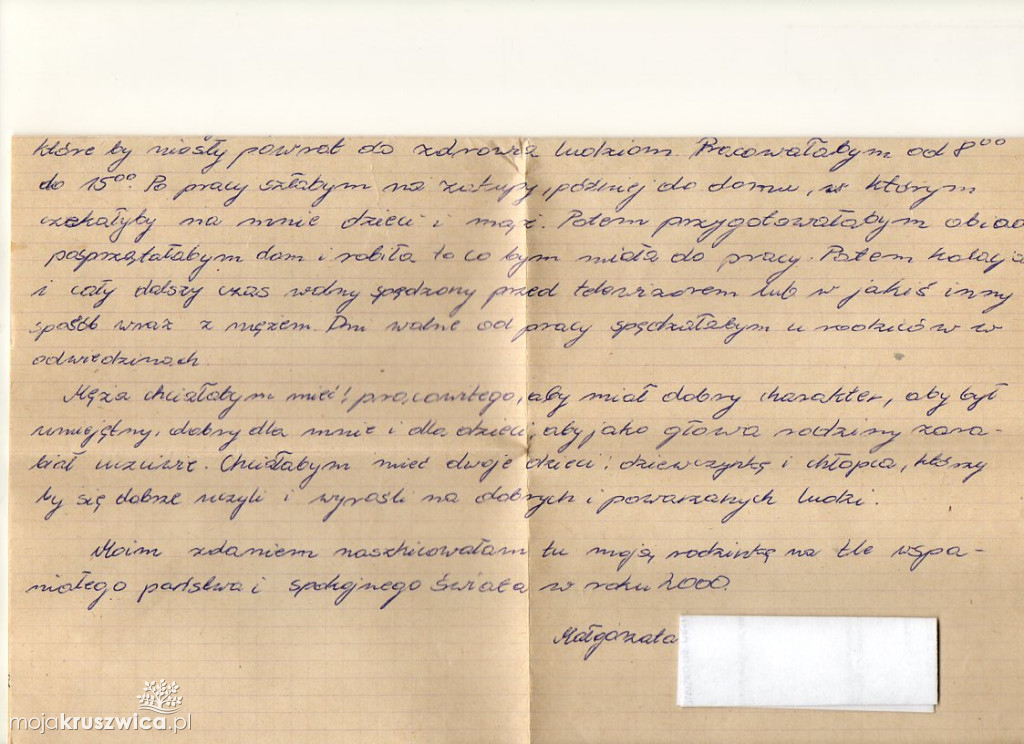 które by niosły powrót do zdrowia ludziom. Pracowałabym od 8⁰⁰
do 15⁰⁰. Po pracy szłabym na zakupy, później do domu, w którym
czekałyby na mnie dzieci i mąż. Potem przygotowałabym obiad
posprzątałabym dom i robiła to co bym miała do pracy. Potem kolacja
i cały dalszy czas wolny spędzony przed telewizorem lub w jakiś inny
sposób wraz z mężem. Dni wolne od pracy spędzałabym u rodziców w
odwiedzinach.
Męża chciałabym mieć! pracowitego, aby miał dobry charakter, aby był
umiejętny, dobry dla mnie i dla dzieci, aby jako głowa rodziny zara-
biał uczciwie. Chciałabym mieć dwoje dzieci: dziewczynkę i chłopca, którzy
by się dobrze uczyli i wyrośli na dobrych i poważanych ludzi.
Moim zdaniem naszkicowałam tu moją rodzinkę na tle wspa-
niałego państwa i spokojnego świata w roku 2000.
Małgorzata
mojakruszwica.pl